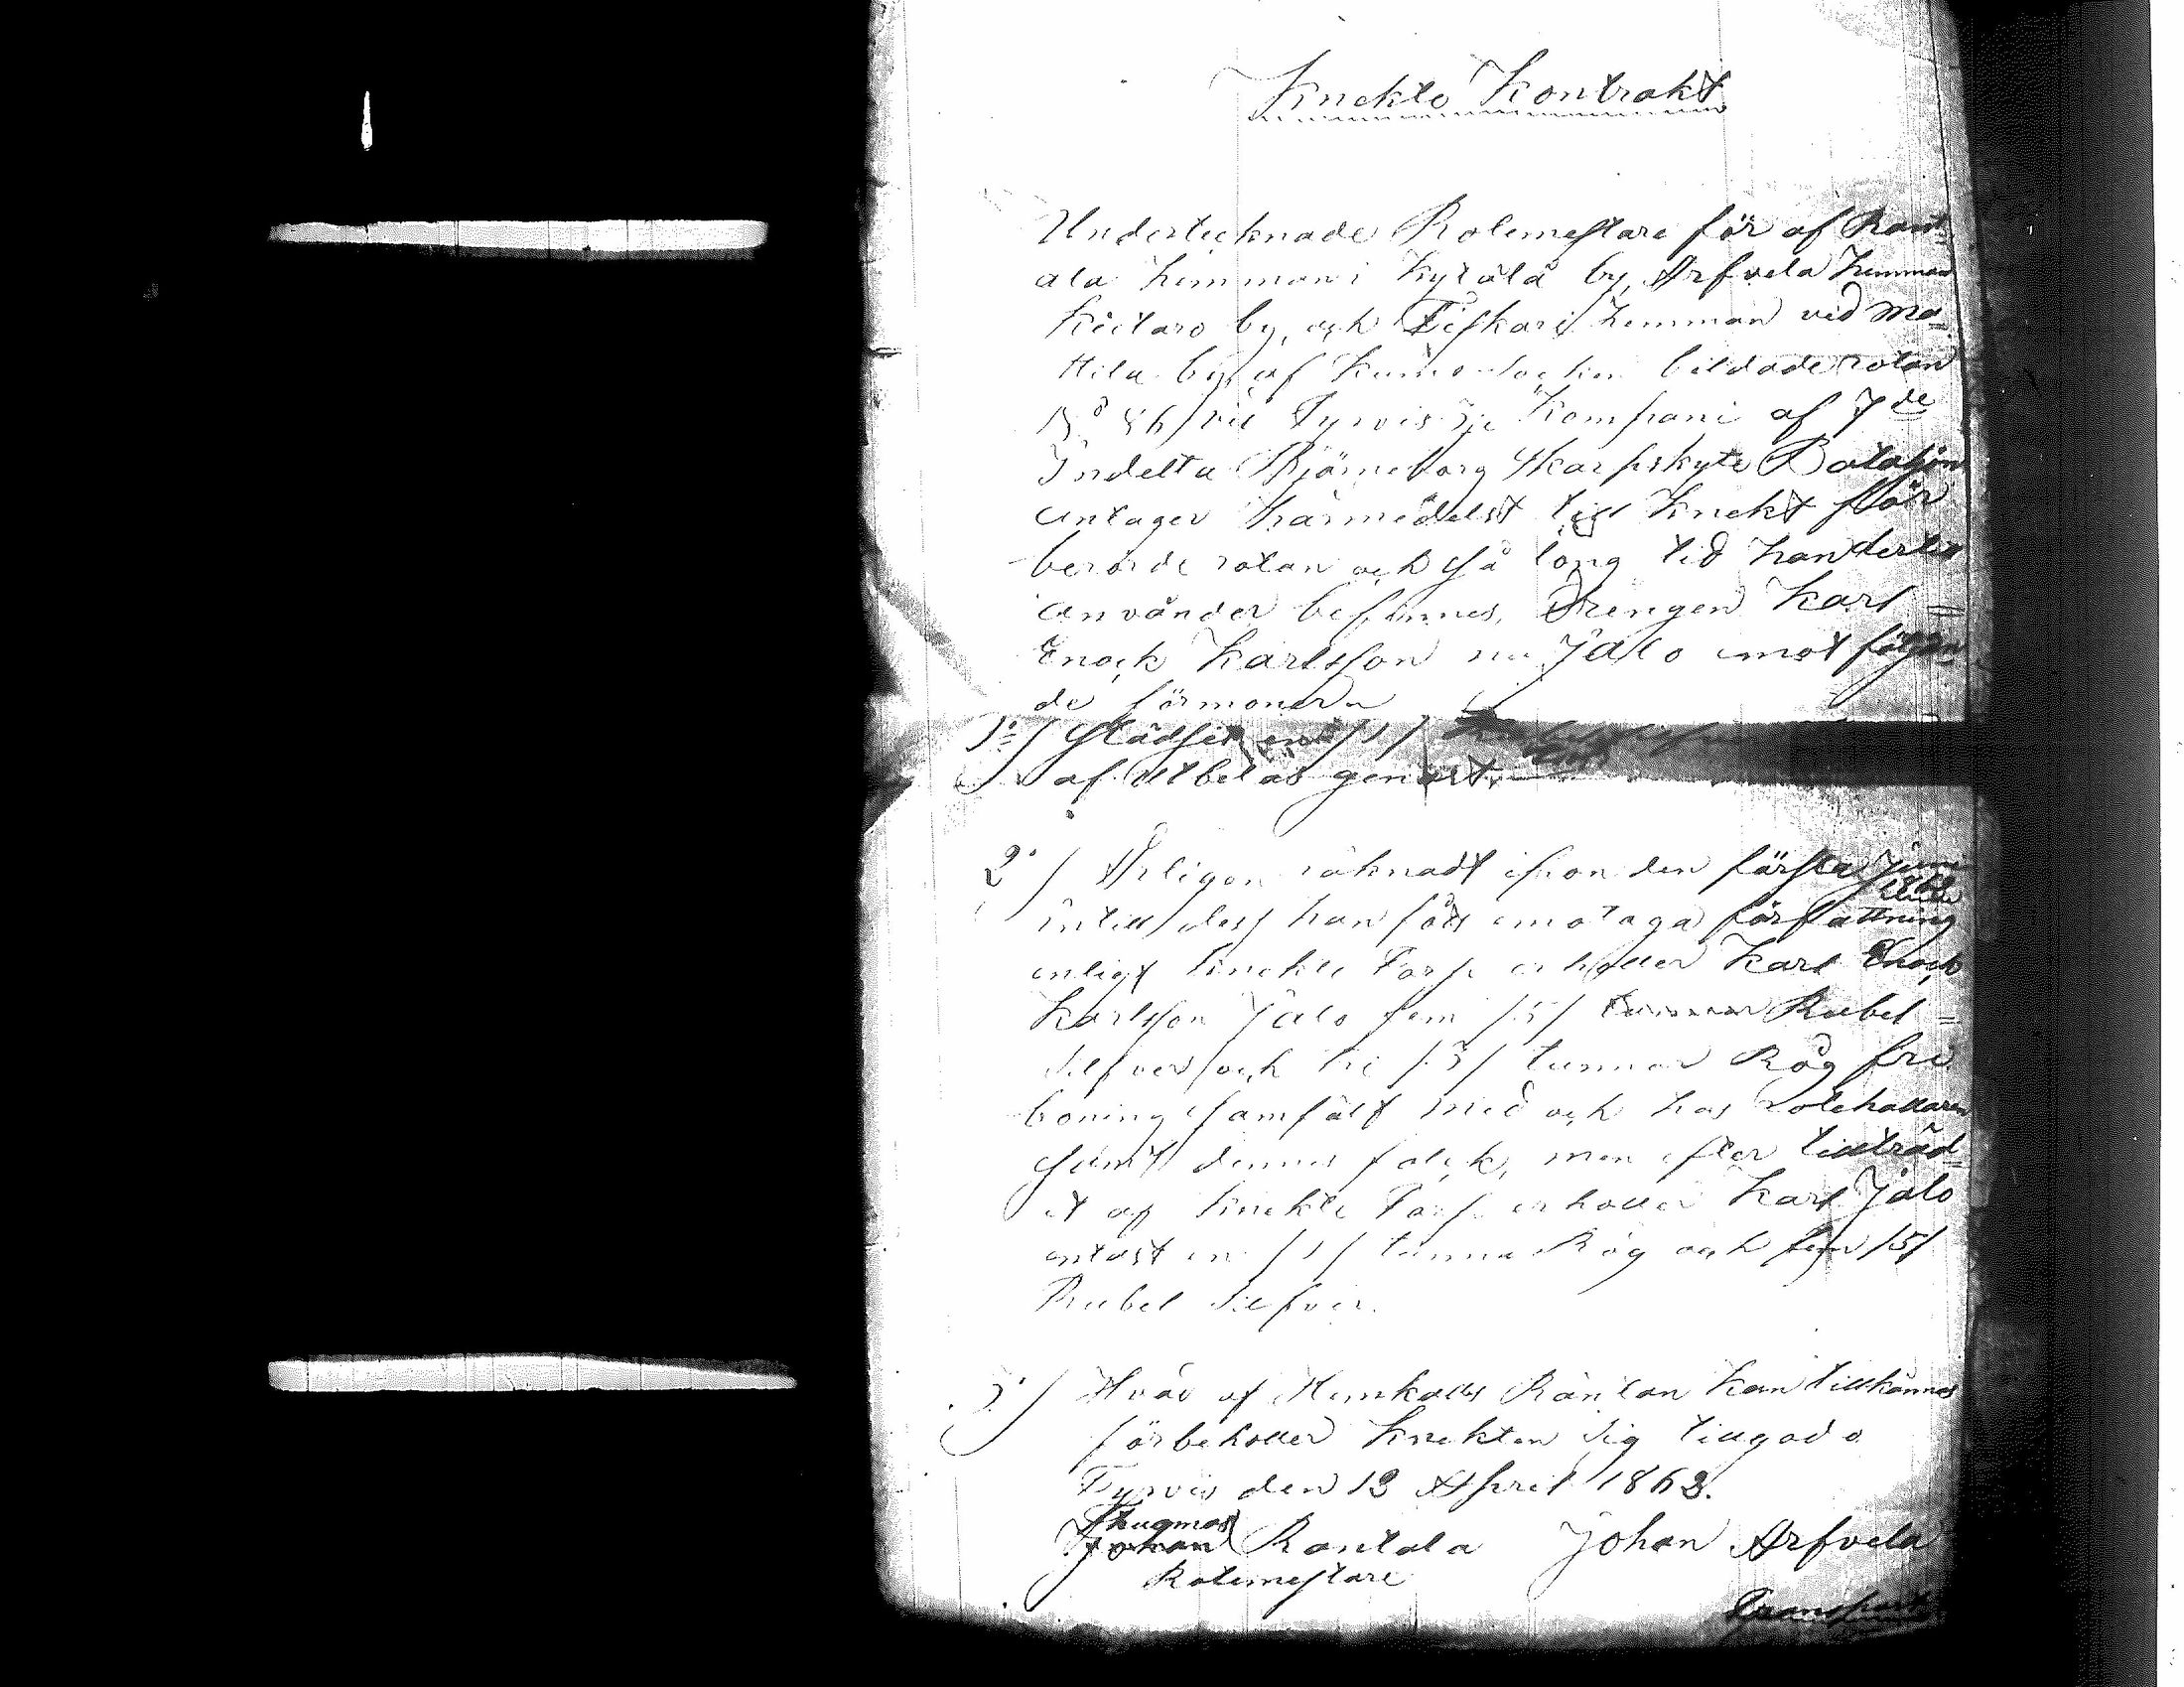 Knekte Kontrakt
Undertecknade Rotemestare för af Rant=
ala hemman i Kylälä by, Arfvela hemman
by, och hemman vid Ma=
ttila by af Kumo Socken bildade rotan
N:o 86 vid Tyrvis Kompani af 7de
Indelta Björneborg Skarpskytte Bataljon
antager härmedelst till Knekt för
berörde rotan och så long tid han dertill
använder befinnes, Drengen Karl =
Enock Karlsson nu Jalo emot följan
de förmoner
1:/ Städsel en /1/
af utbetas genast.
2:/ Årligen räknadt ifron den första Juni
1862
intill dess han får emotaga författning
enligt Knekte Torp erholler Karl Enock
Karlsson Jalo fem /5/ Rubel =
Silfver och tre /3/ tunnor Råg fri
boning samfält med och hos Rotehollaren
samt dennes folck, men efter tillträd=
et af Knekte Torp erholler Karl Jalo
entast en /1/ tunna Råg och fem /5/
Rubel Silfver.
3:/ Hvad af Hemkalls Räntan kan tillkännas
förbeholler Knekten Sig tillgodo
Tyrvis den 12 April 1862.
Johan Rantala Johan Arfvela
Rotemestare
Transport